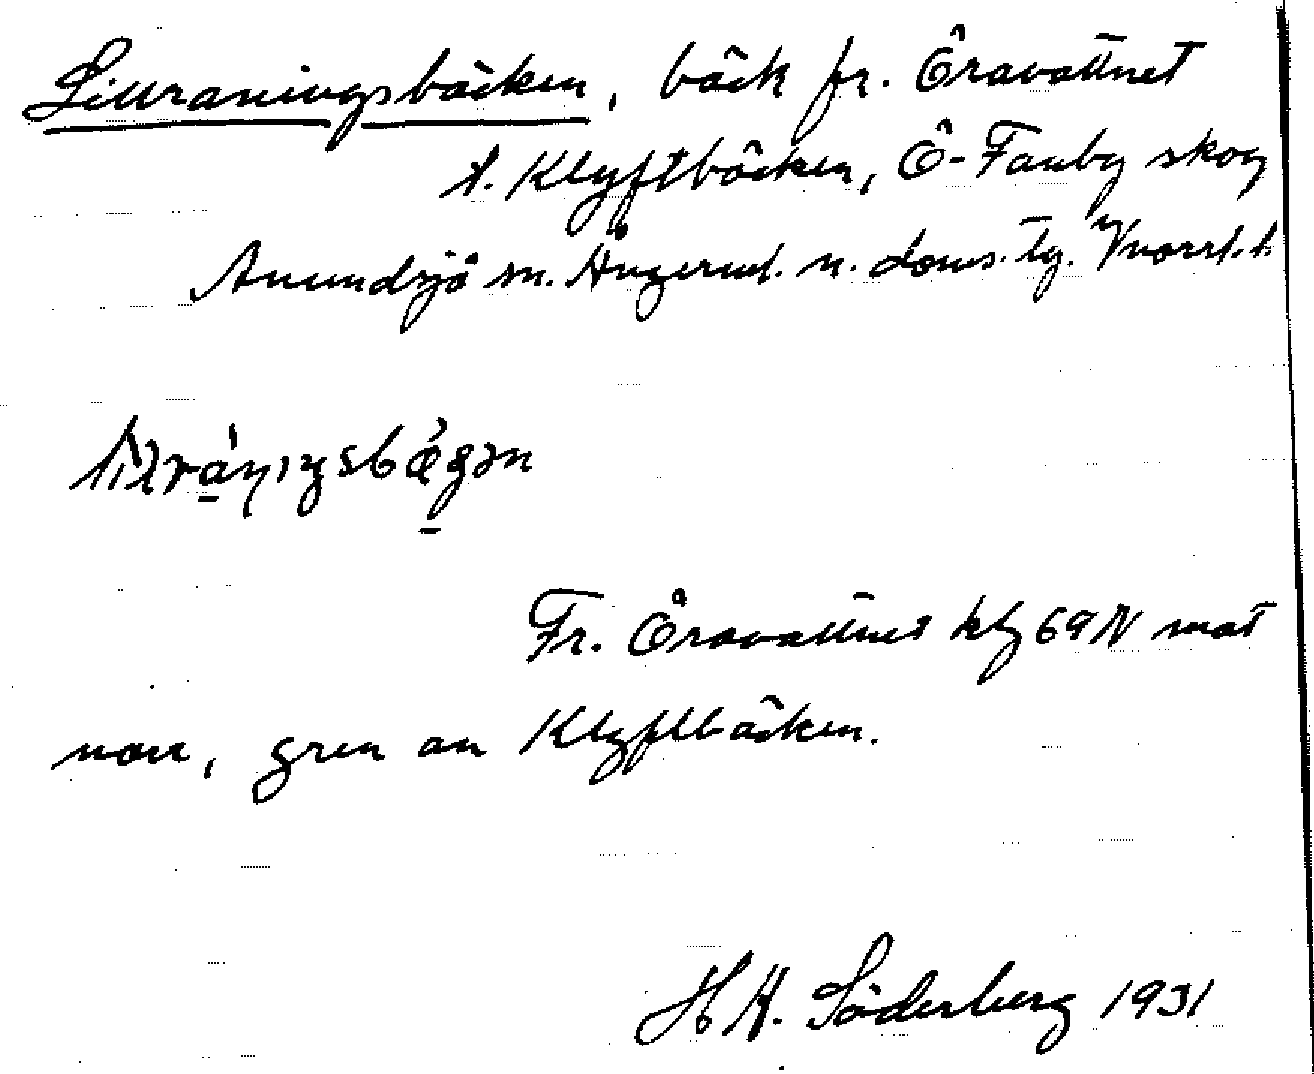 Lillraningsbäcken, bäck fr. Öravattnet
t. Klyftbäcken, Ö-Fanby skog
Anundsjö sn. Ångerml. n. doms. tg. Vnorrl. l.
Fr. Öravattnet kly 69 N mot
norr, gren av Klyftbäcken.
H H. Söderberg 1931